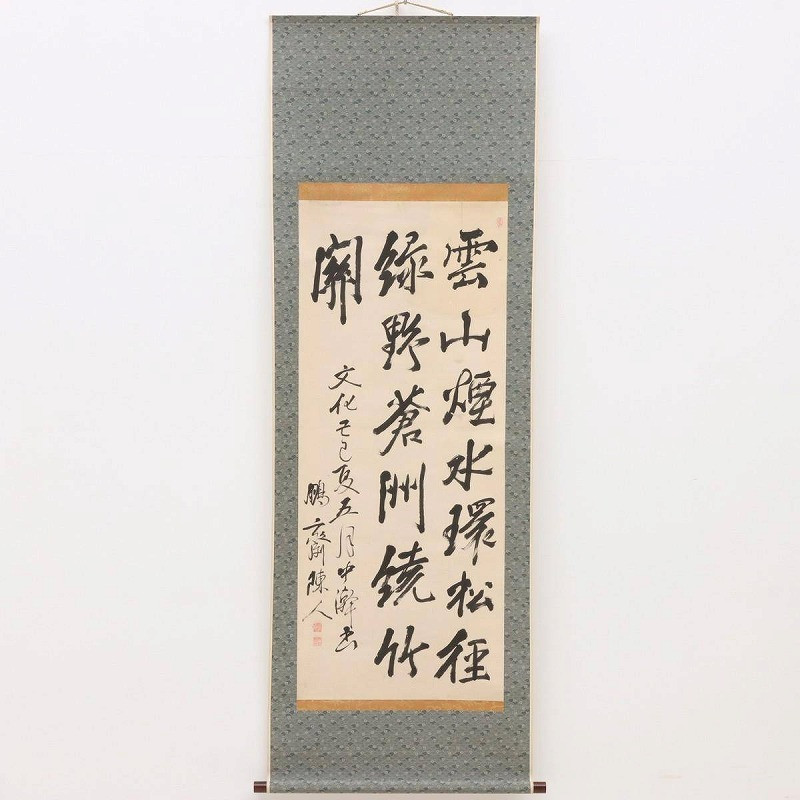 雲山煙水環松徑
綠野蒼洲鐃竹
關
文化己巳夏五月中澣書
鵬齋陳人